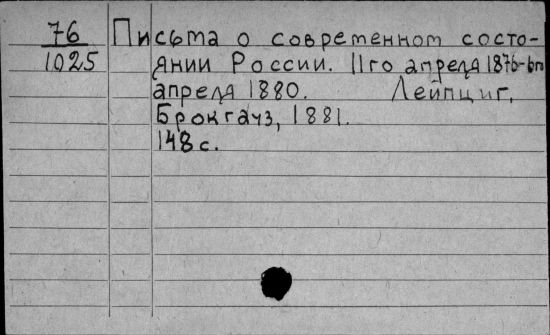 76 Письма о современном состо-
1025 янии России. 11го апреля 1876-6го
апреля 1880. Лейпциг,
Брокгауз, 1881.
148 с.